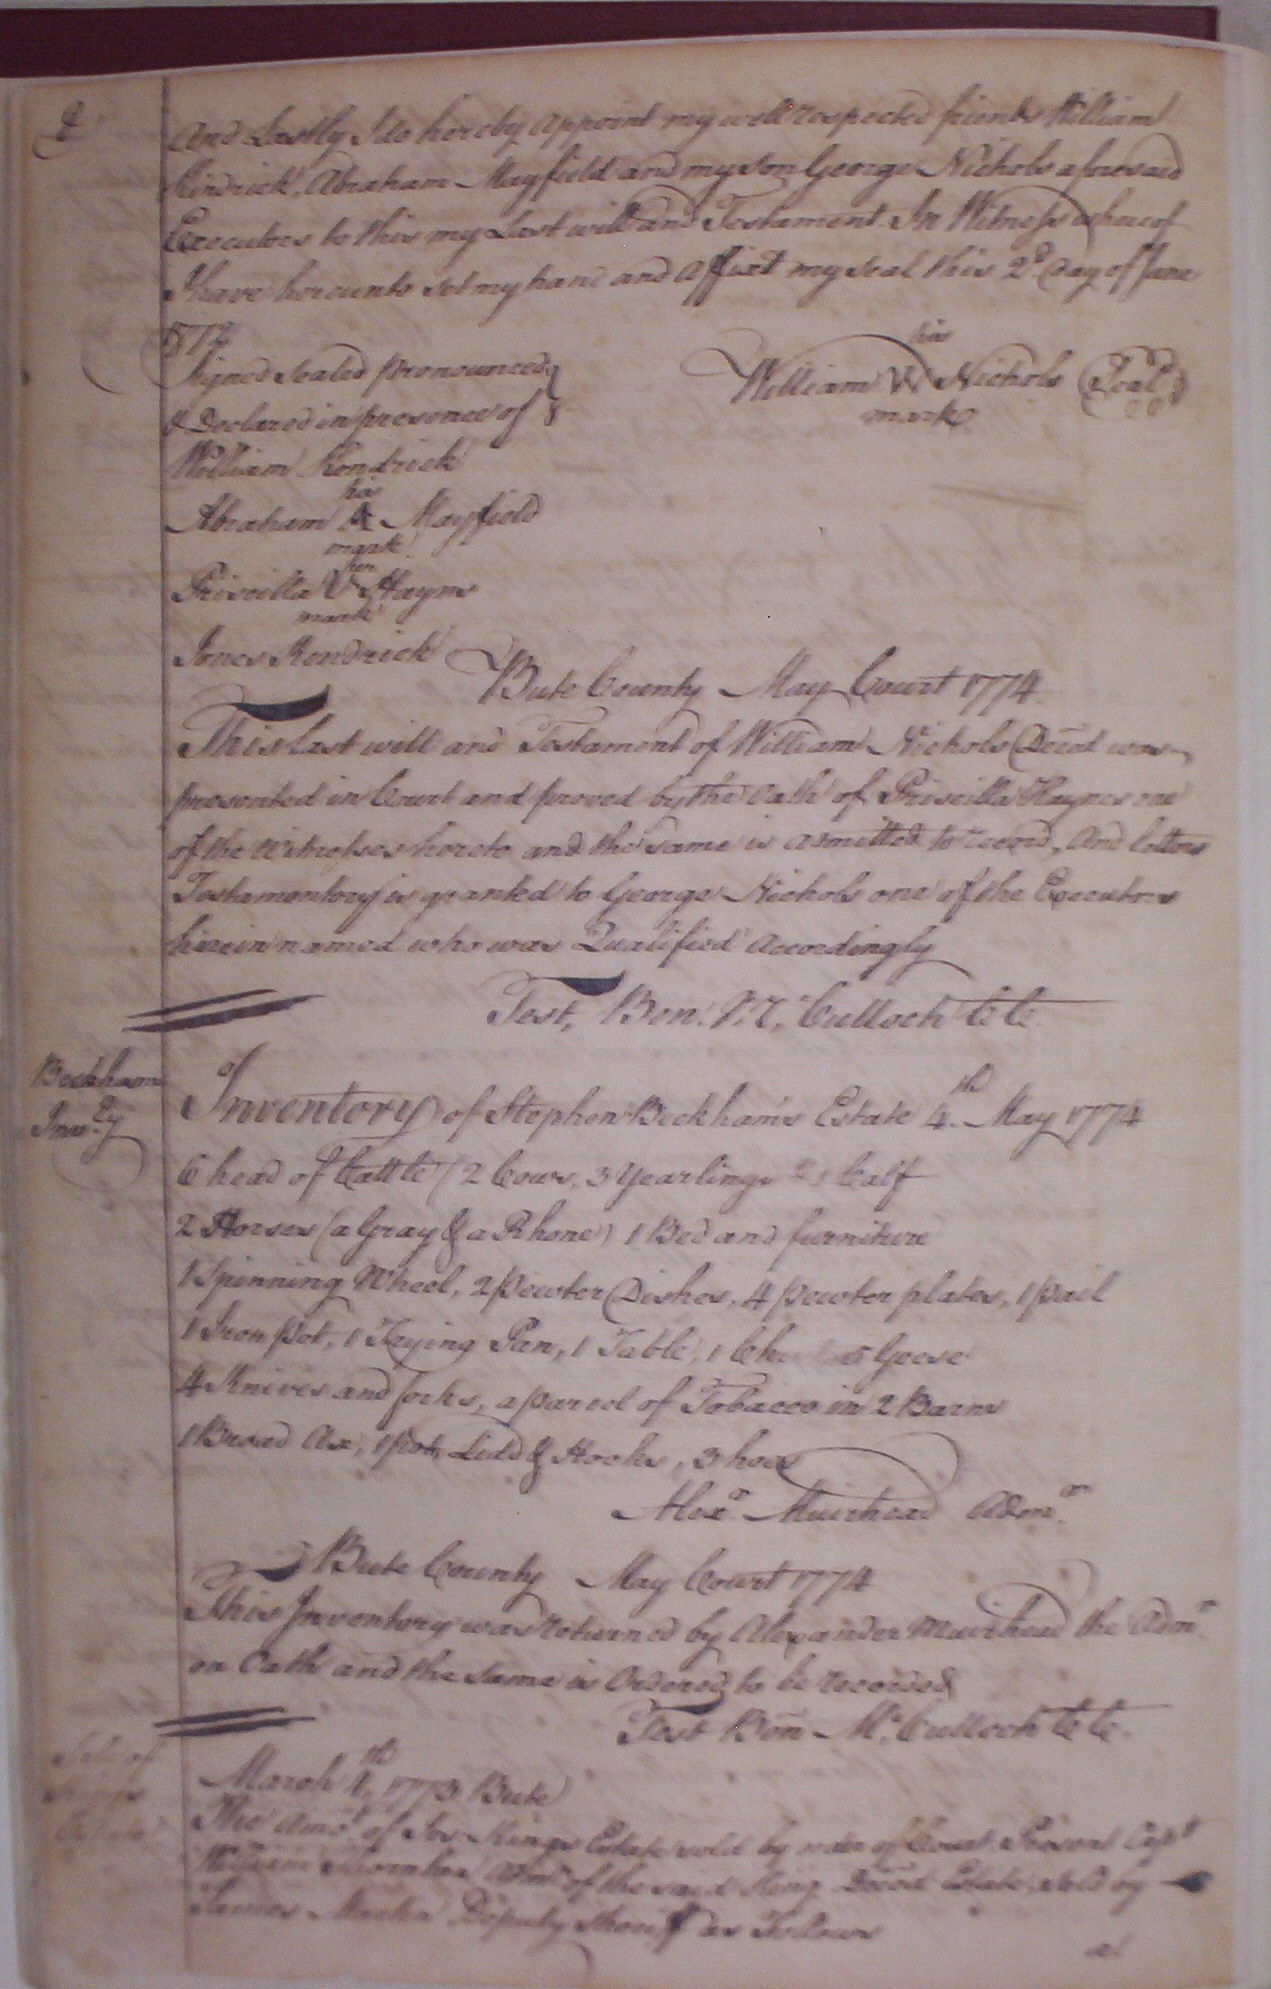 And Lastly I do hereby appoint my well respected friends William
Kindrick, Abraham Mayfield and my son George Nichols aforesaid
Executors to this my Last will and Testament In Witness whereof
I have hereunto set my hand and affixt my seal this 2d Day of June
William his W mark Nichols Seal
Signed Sealed pronounced
& Declared in presence of
William Kendrick
his
Abraham A Mayfield
mark
her
Priscilla V Hayns
mark
Jones Kendrick
Bute County May Court 1774
This last will and Testament of William Nichols Decd was
presented in Court and proved by the Oath of Priscilla Haynes one
of the Witnesses hereto and the same is admitted to record, And letters
Testamentory is granted to George Nichols one of the Executors
herein named who was Qualified Accordingly
Test, Ben. McCulloch CC
Beckham
Inv.ty
Inventory of Stephen Beckham's Estate 4th May 1774
6 head of Cattle (2 Cows, 3 Yearlings & 1 Calf
2 Horses (a Gray & a Rhone) 1 Bed and furniture
1 Spinning Wheel, 2 pewter Dishes, 4 pewter plates, 1 pail
1 Iron pot, 1 Frying Pan, 1 Table, 1 5 Geese
4 Knives and forks, a parcel of Tobacco in 2 Barns
1 Broad Ax, 1 pot, Lidd & Hooks, 3 hoes
Alexr. Muirhead Admr.
Bute County May Court 1774
This Inventory was returned by Alexander Muirhead the Admr.
on Oath and the same is Ordered to be recorded
Test Ben McCulloch CC.
Sale of
Kings
Estate
March 4th, 1773 Bute
The Amot of Jos Kings Estate sold by order of Court Present Capt
William Admr of the said King Decd Estate, sold by
James Martin Deputy Sheriff as Follows